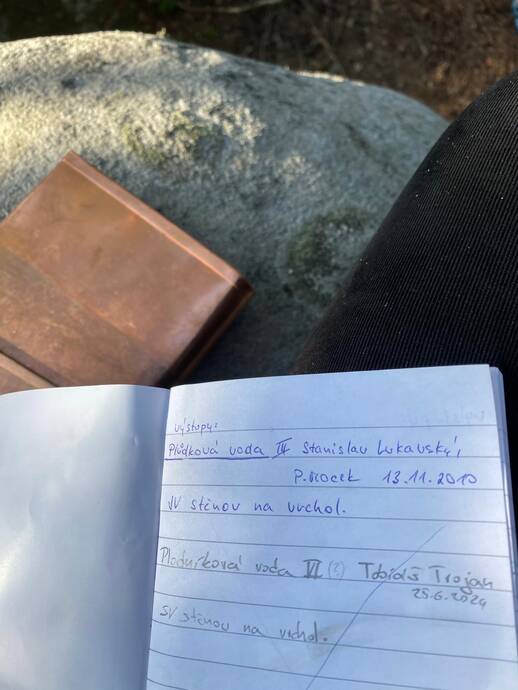 výstupy:
Plůdková voda IV Stanislav Lukavský,
P. Mocek 13.11.2010
SV stěnou na vrchol.
Plodůnková voda VI (?) Tobiáš Trojan
25.6.2024
SV stěnou na vrchol.